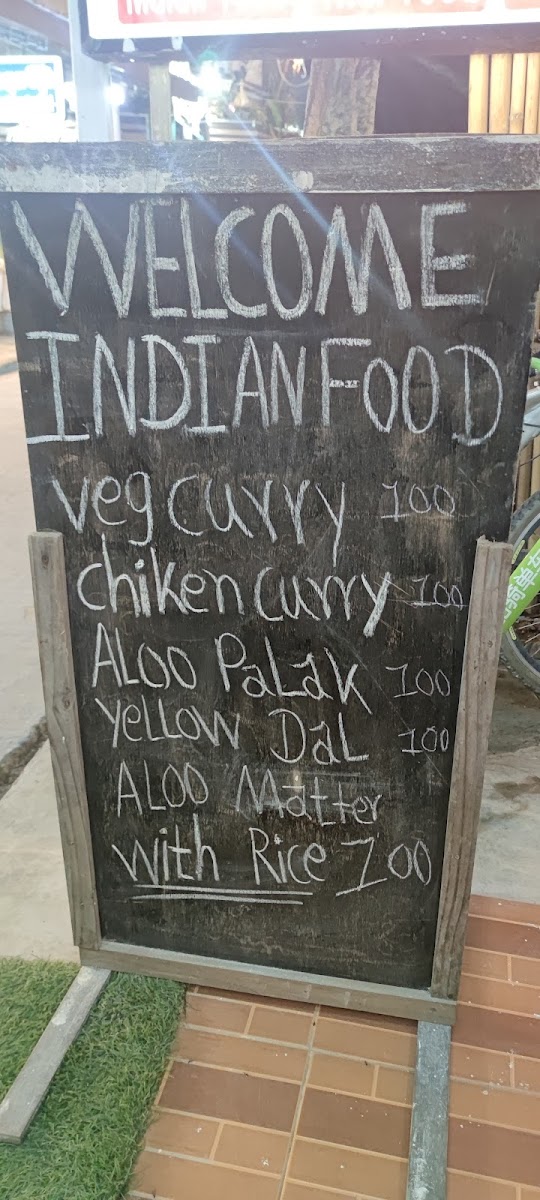 WELCOME
INDIAN FOOD
veg curry 100
chiken curry 100
ALOO PaLak 100
yeLLOW DaL 100
ALOO Matter
with Rice 100